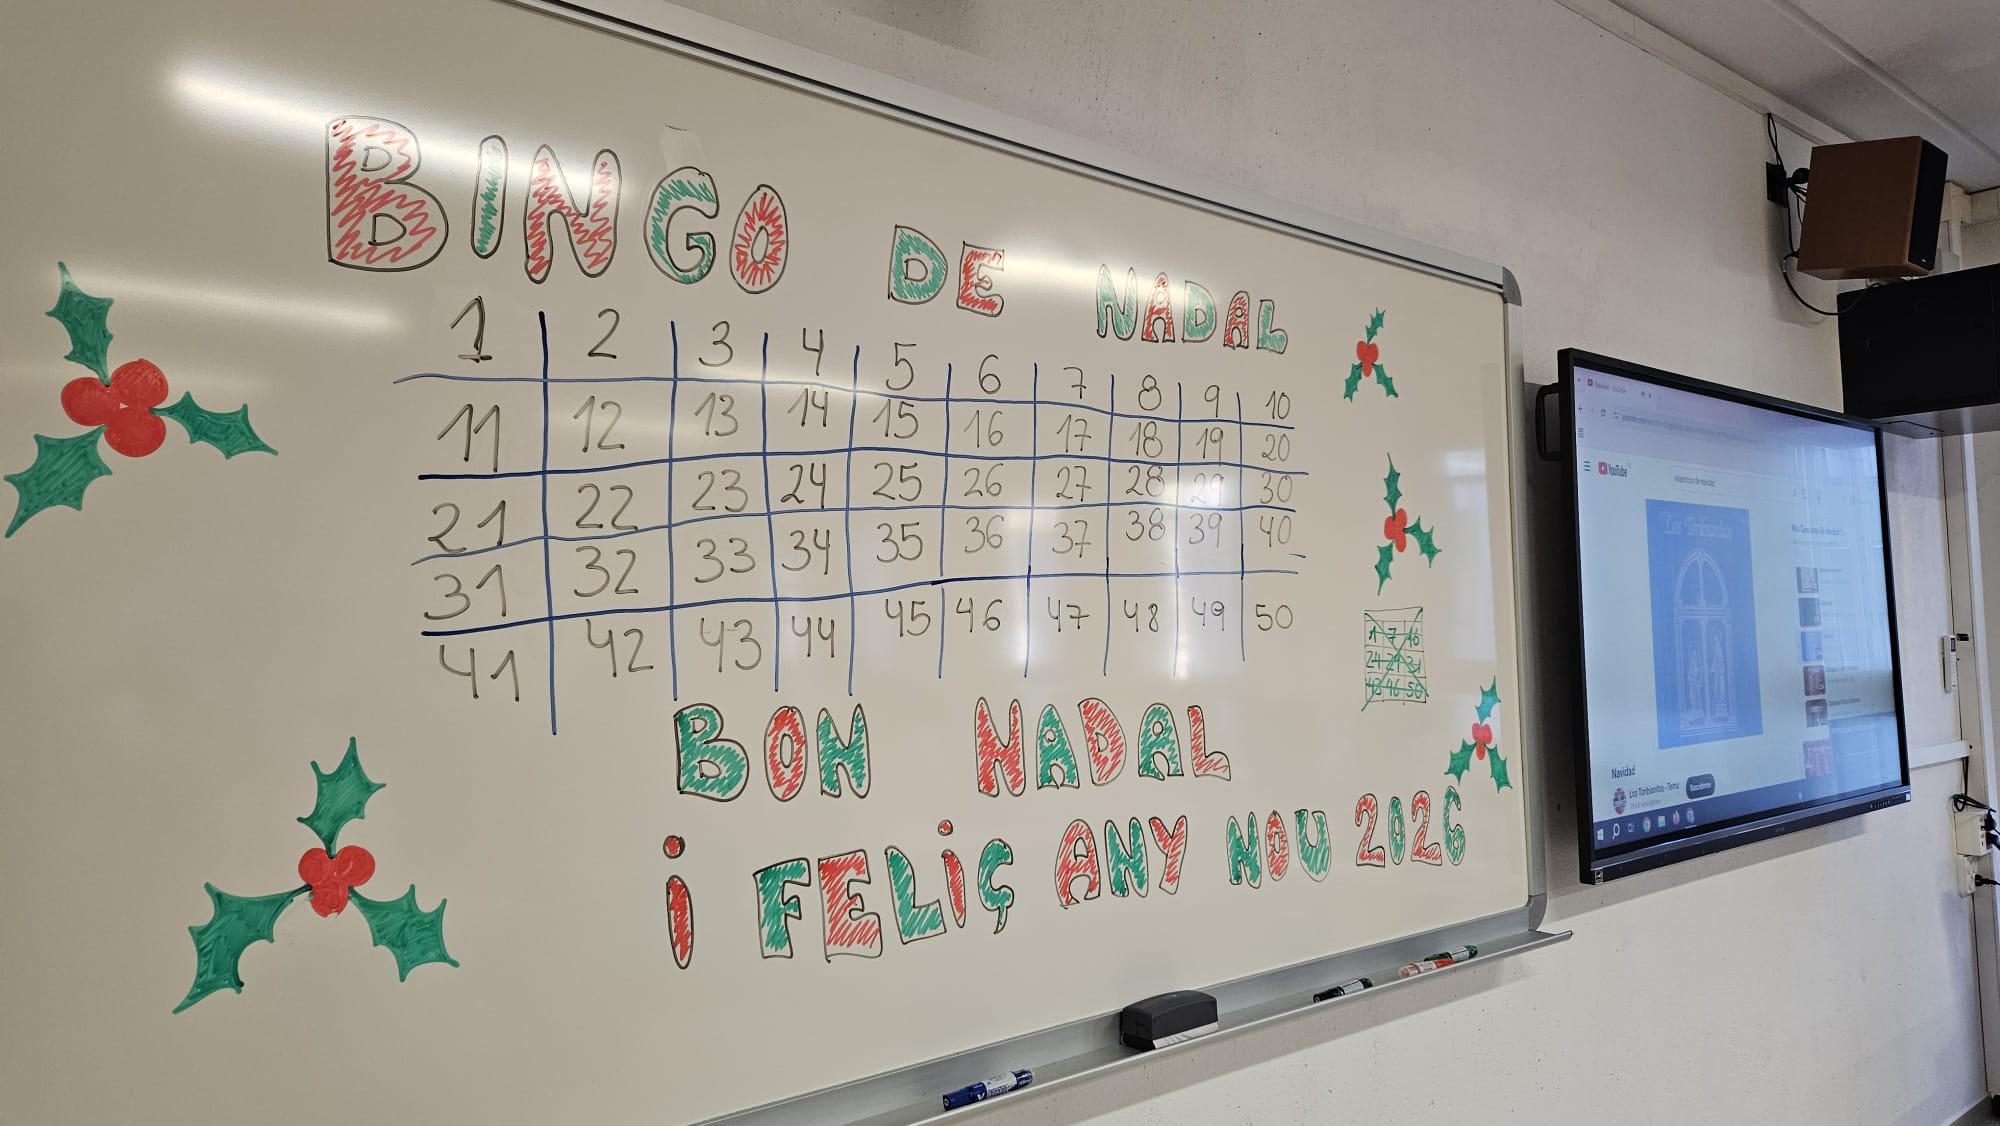 BINGO DE NADAL
1 2 3 4 5 6 7 8 9 10
11 12 13 14 15 16 17 18 19 20
21 22 23 24 25 26 27 28 29 30
31 32 33 34 35 36 37 38 39 40
41 42 43 44 45 46 47 48 49 50
1 7 16
24 29 31
43 46 50
BON NADAL
i FELiÇ ANY NOU 2026
YouTube
Los Toribianitos
Navidad
Los Toribianitos - Tema
Suscribirme